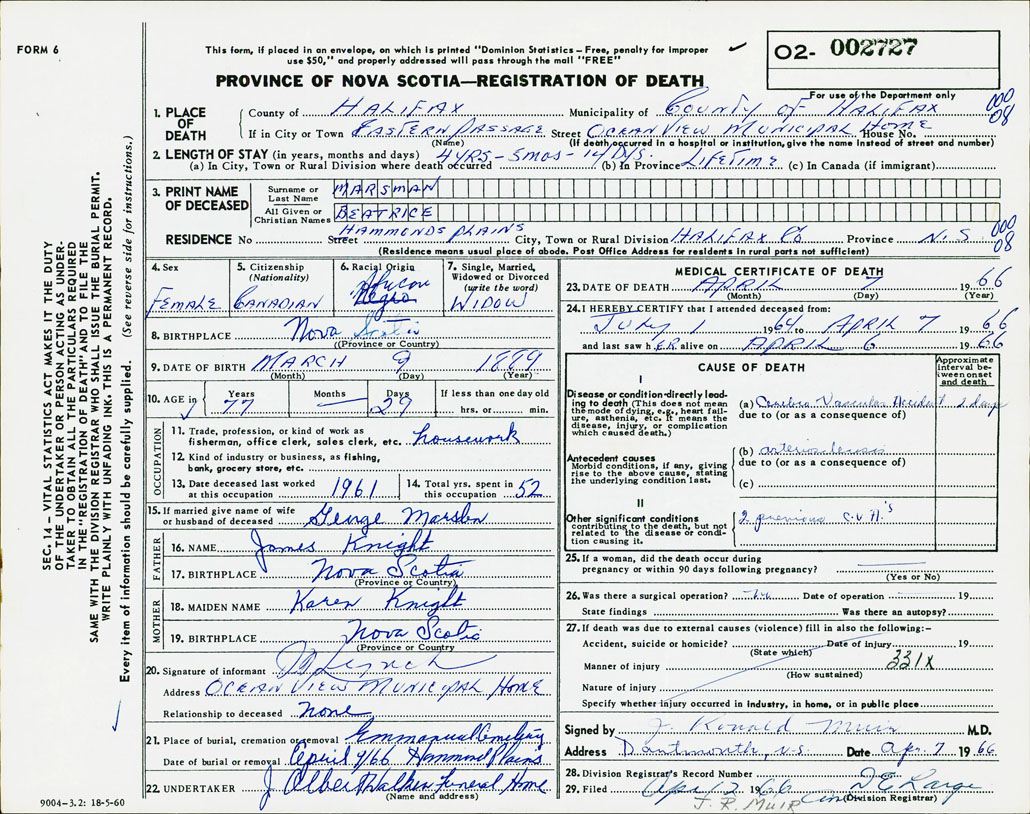 FORM 6
This form, if placed in an envelope, on which is printed "Dominion Statistics – Free, penalty for improper
use $50," and properly addressed will pass through the mail "FREE"
O2- 002727
PROVINCE OF NOVA SCOTIA—REGISTRATION OF DEATH
For use of the Department only
SEC. 14 – VITAL STATISTICS ACT MAKES IT THE DUTY
OF THE UNDERTAKER OR PERSON ACTING AS UNDER-
TAKER TO OBTAIN ALL THE PARTICULARS REQUIRED
IN THE "REGISTRATION OF DEATH" AND TO FILE THE
SAME WITH THE DIVISION REGISTRAR WHO SHALL ISSUE THE BURIAL PERMIT.
WRITE PLAINLY WITH UNFADING INK. THIS IS A PERMANENT RECORD.
Every item of information should be carefully supplied. (See reverse side for instructions.)
1. PLACE OF DEATH
County of HALIFAX Municipality of COUNTY OF HALIFAX 000 08
If in City or Town EASTERN PASSAGE Street OCEAN VIEW MUNICIPAL HOME House No.
(Name) (If death occurred in a hospital or institution, give the name instead of street and number)
2. LENGTH OF STAY (in years, months and days) 4 YRS - 5 MOS - 14 DYS.
(a) In City, Town or Rural Division where death occurred (b) In Province LIFETIME (c) In Canada (if immigrant)
3. PRINT NAME OF DECEASED
Surname or Last Name MARSMAN
All Given or Christian Names BEATRICE
RESIDENCE No Street HAMMONDS PLAINS City, Town or Rural Division HALIFAX Co Province N.S 000 08
(Residence means usual place of abode. Post Office Address for residents in rural parts not sufficient)
4. Sex FEMALE
5. Citizenship (Nationality) CANADIAN
6. Racial Origin Negro
7. Single, Married, Widowed or Divorced (write the word) WIDOW
8. BIRTHPLACE Nova Scotia
(Province or Country)
9. DATE OF BIRTH MARCH 9 1889
(Month) (Day) (Year)
10. AGE in Years 77 Months — Days 29 If less than one day old hrs. or min.
OCCUPATION
11. Trade, profession, or kind of work as fisherman, office clerk, sales clerk, etc. housework
12. Kind of industry or business, as fishing, bank, grocery store, etc.
13. Date deceased last worked at this occupation 1961
14. Total yrs. spent in this occupation 52
15. If married give name of wife or husband of deceased George
FATHER
16. NAME James Knight
17. BIRTHPLACE Nova Scotia
(Province or Country)
MOTHER
18. MAIDEN NAME Karen Knight
19. BIRTHPLACE Nova Scotia
(Province or Country)
20. Signature of informant Lynch
Address OCEAN VIEW MUNICIPAL HOME
Relationship to deceased none
21. Place of burial, cremation or removal Emmanual Cemetery
Date of burial or removal April 9/66 Hammond Plains
22. UNDERTAKER J Albert Walker Funeral Home
(Name and address)
9004-3.2: 18-5-60
MEDICAL CERTIFICATE OF DEATH
23. DATE OF DEATH APRIL 7 1966
(Month) (Day) (Year)
24. I HEREBY CERTIFY that I attended deceased from:
JULY 1 1964 to APRIL 7 1966
and last saw hER alive on APRIL 6 1966
CAUSE OF DEATH
Approximate interval between onset and death
I
Disease or condition directly leading to death (This does not mean the mode of dying, e.g., heart failure, asthenia, etc. It means the disease, injury, or complication which caused death.)
(a) Cerebro Vascular Accident 2 days
due to (or as a consequence of)
Antecedent causes
Morbid conditions, if any, giving rise to the above cause, stating the underlying condition last.
(b)
due to (or as a consequence of)
(c)
II
Other significant conditions contributing to the death, but not related to the disease or condition causing it.
2 previous C.V.A.'s
25. If a woman, did the death occur during
pregnancy or within 90 days following pregnancy?
(Yes or No)
26. Was there a surgical operation? Date of operation 19
State findings Was there an autopsy?
27. If death was due to external causes (violence) fill in also the following:–
Accident, suicide or homicide? Date of injury 19
(State which)
Manner of injury 331X
(How sustained)
Nature of injury
Specify whether injury occurred in industry, in home, or in public place
Signed by J. Ronald Muir M.D.
Address Dartmouth, N.S. Date Apr. 7 1966
28. Division Registrar's Record Number
29. Filed Apr 12 1966
(Division Registrar)
J. R. MUIR